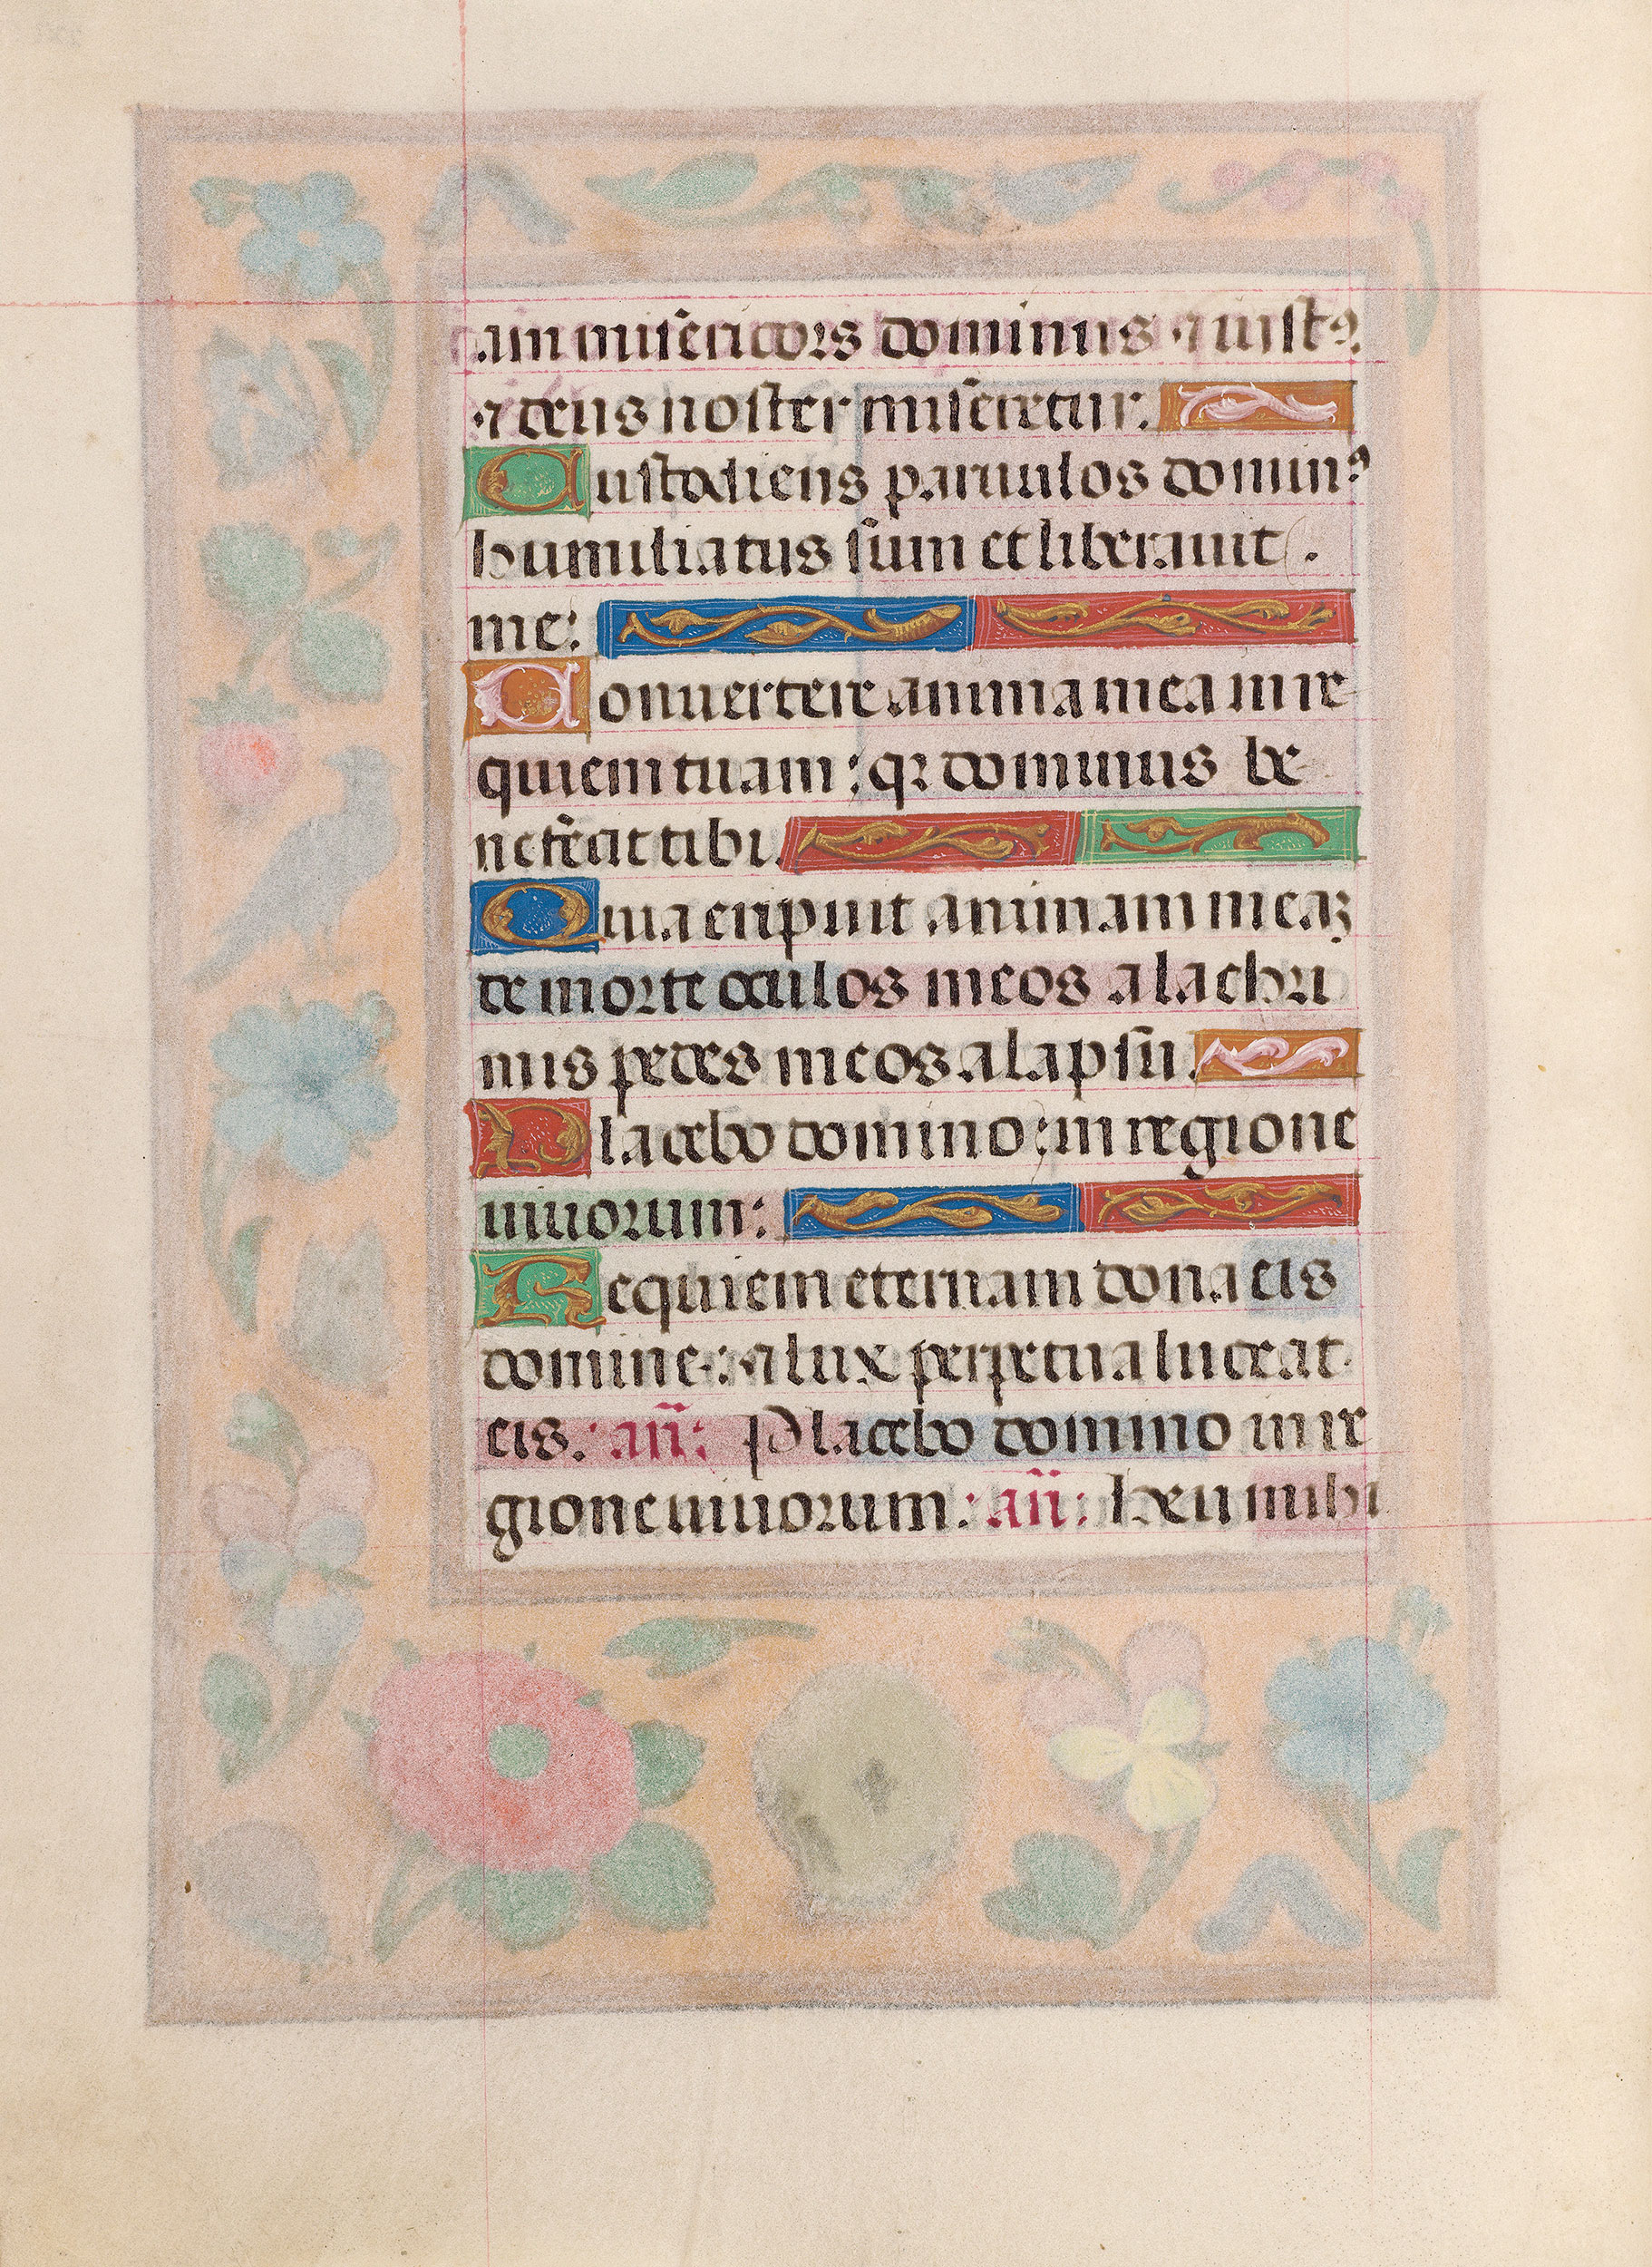 am misericors dominus ⁊ iustꝰ.
⁊ deus noster miseretur.
Custodiens paruulos dominꝰ
humiliatus sum et liberauit
me:
Conuertere anima mea in re
quiem tuam: qꝛ dominus be
nefecit tibi.
Quia eripuit animam meaꝫ
de morte oculos meos a lachri
mis pedes meos a lapsu.
Placebo domino: in regione
uiuorum:
Requiem eternam dona eis
domine: ⁊ lux perpetua luceat
eis. añ: Placebo domino in re
gione uiuorum: añ: Heu mihi